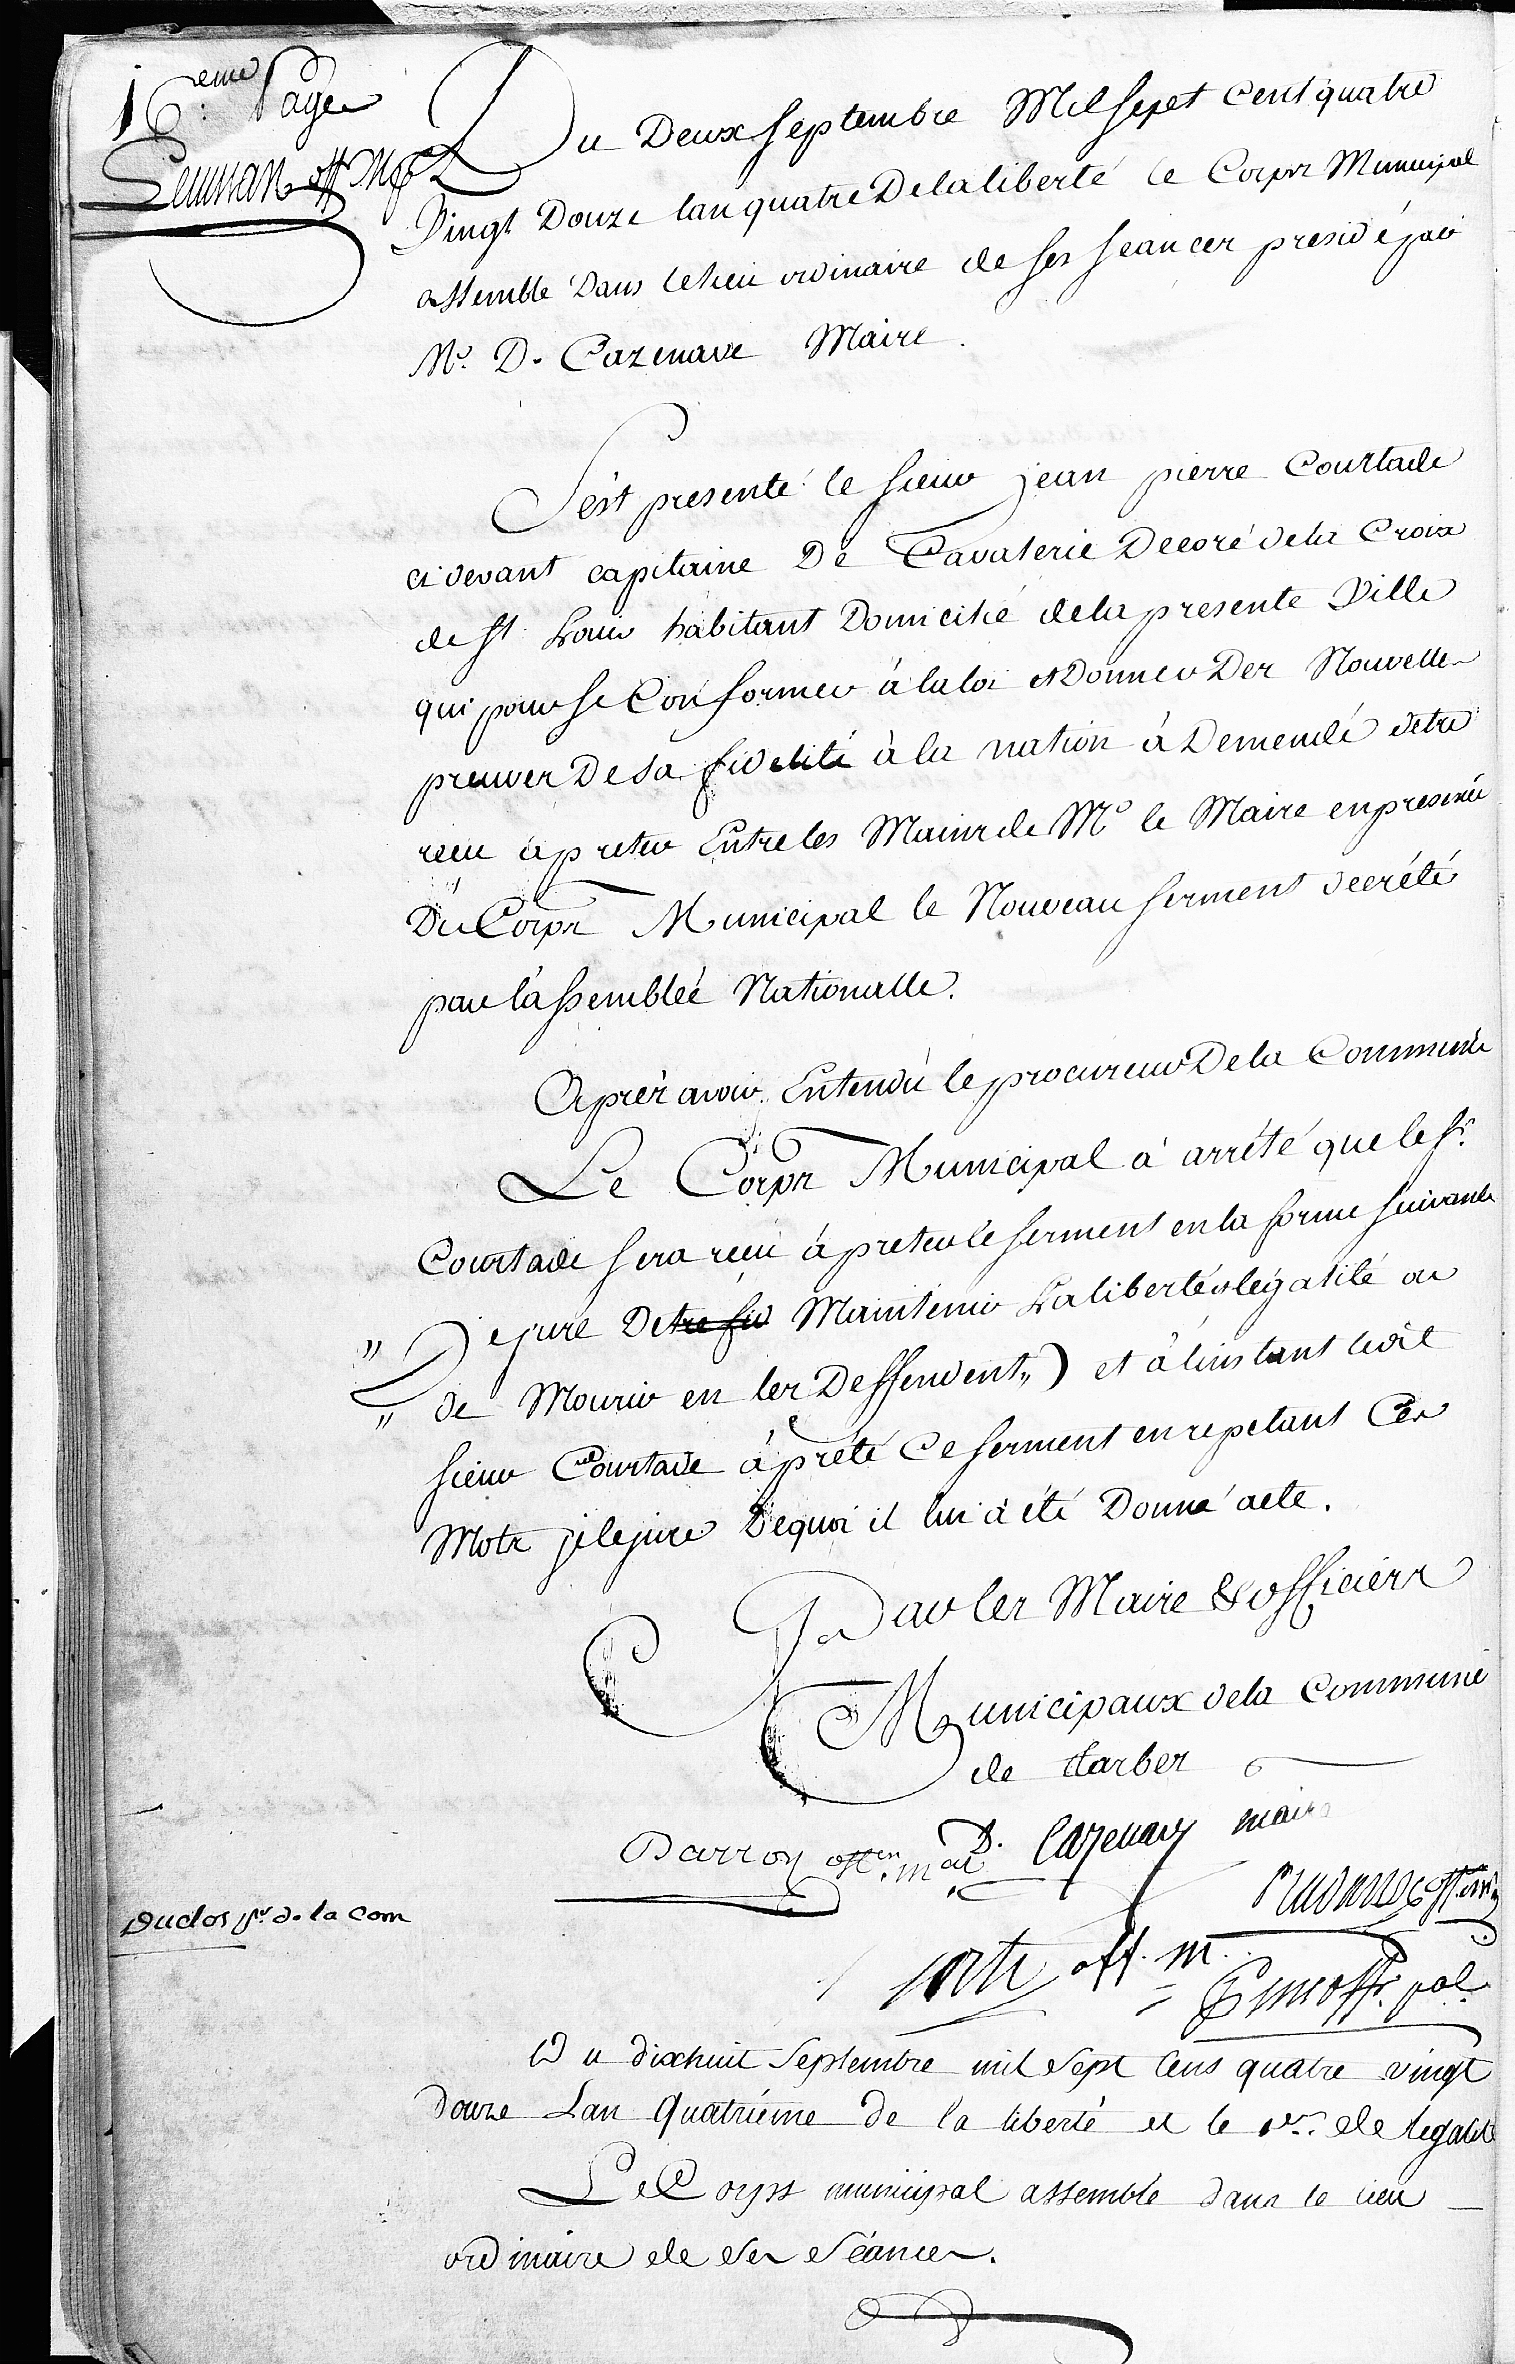 16.eme Page
off Mpl
Du Deux septembre Mil sepet cent quatre
Vingt Douze lan quatre De la liberté le Corps Municipal
assemblé Dans le lieu ordinaire de ses seances presidé par
Mr. D. Cazenave Maire.
S'est presenté le sieur jean pierre Courtade
ci devant capitaine De Cavalerie Decoré de la Croix
de St. Louis habitant Domicilié de la presente Ville
qui pour se Conformer à la loi et Donner Des Nouvelles
preuves De sa fidelité à la nation à Demendé detre
recu à preter Entre les Mains de Mr le Maire en presence
Du Corps Municipal le Nouveau serment decrété
par l'assemblée Nationalle.
Après avoir Entendu le procureur De la Commune
Le Corps Municipal à arrété que le Sr.
Courtade sera recu à preter le serment en la forme suivante
" Je jure De tre fid Maintenir La liberté et legalité ou
" de Mourir en les Deffendent") et à linstant ledit
sieur Courtade à prété Ce serment en repetant Ces
Mots je le jure De quoi il lui à été Donné acte.
Par les Maire & officiers
Municipaux de la Commune
de tarbes
Barron offer. mal D. Cazenave maire
Duclos pr. de la Com
off. m.
Du dixhuit Septembre mil Sept Cens quatre vingt
douze Lan quatriéme de la liberté et le 1er. de legalité
Le Corps municipal assemblé dans le lieu
ordinaire de Ses Séances.